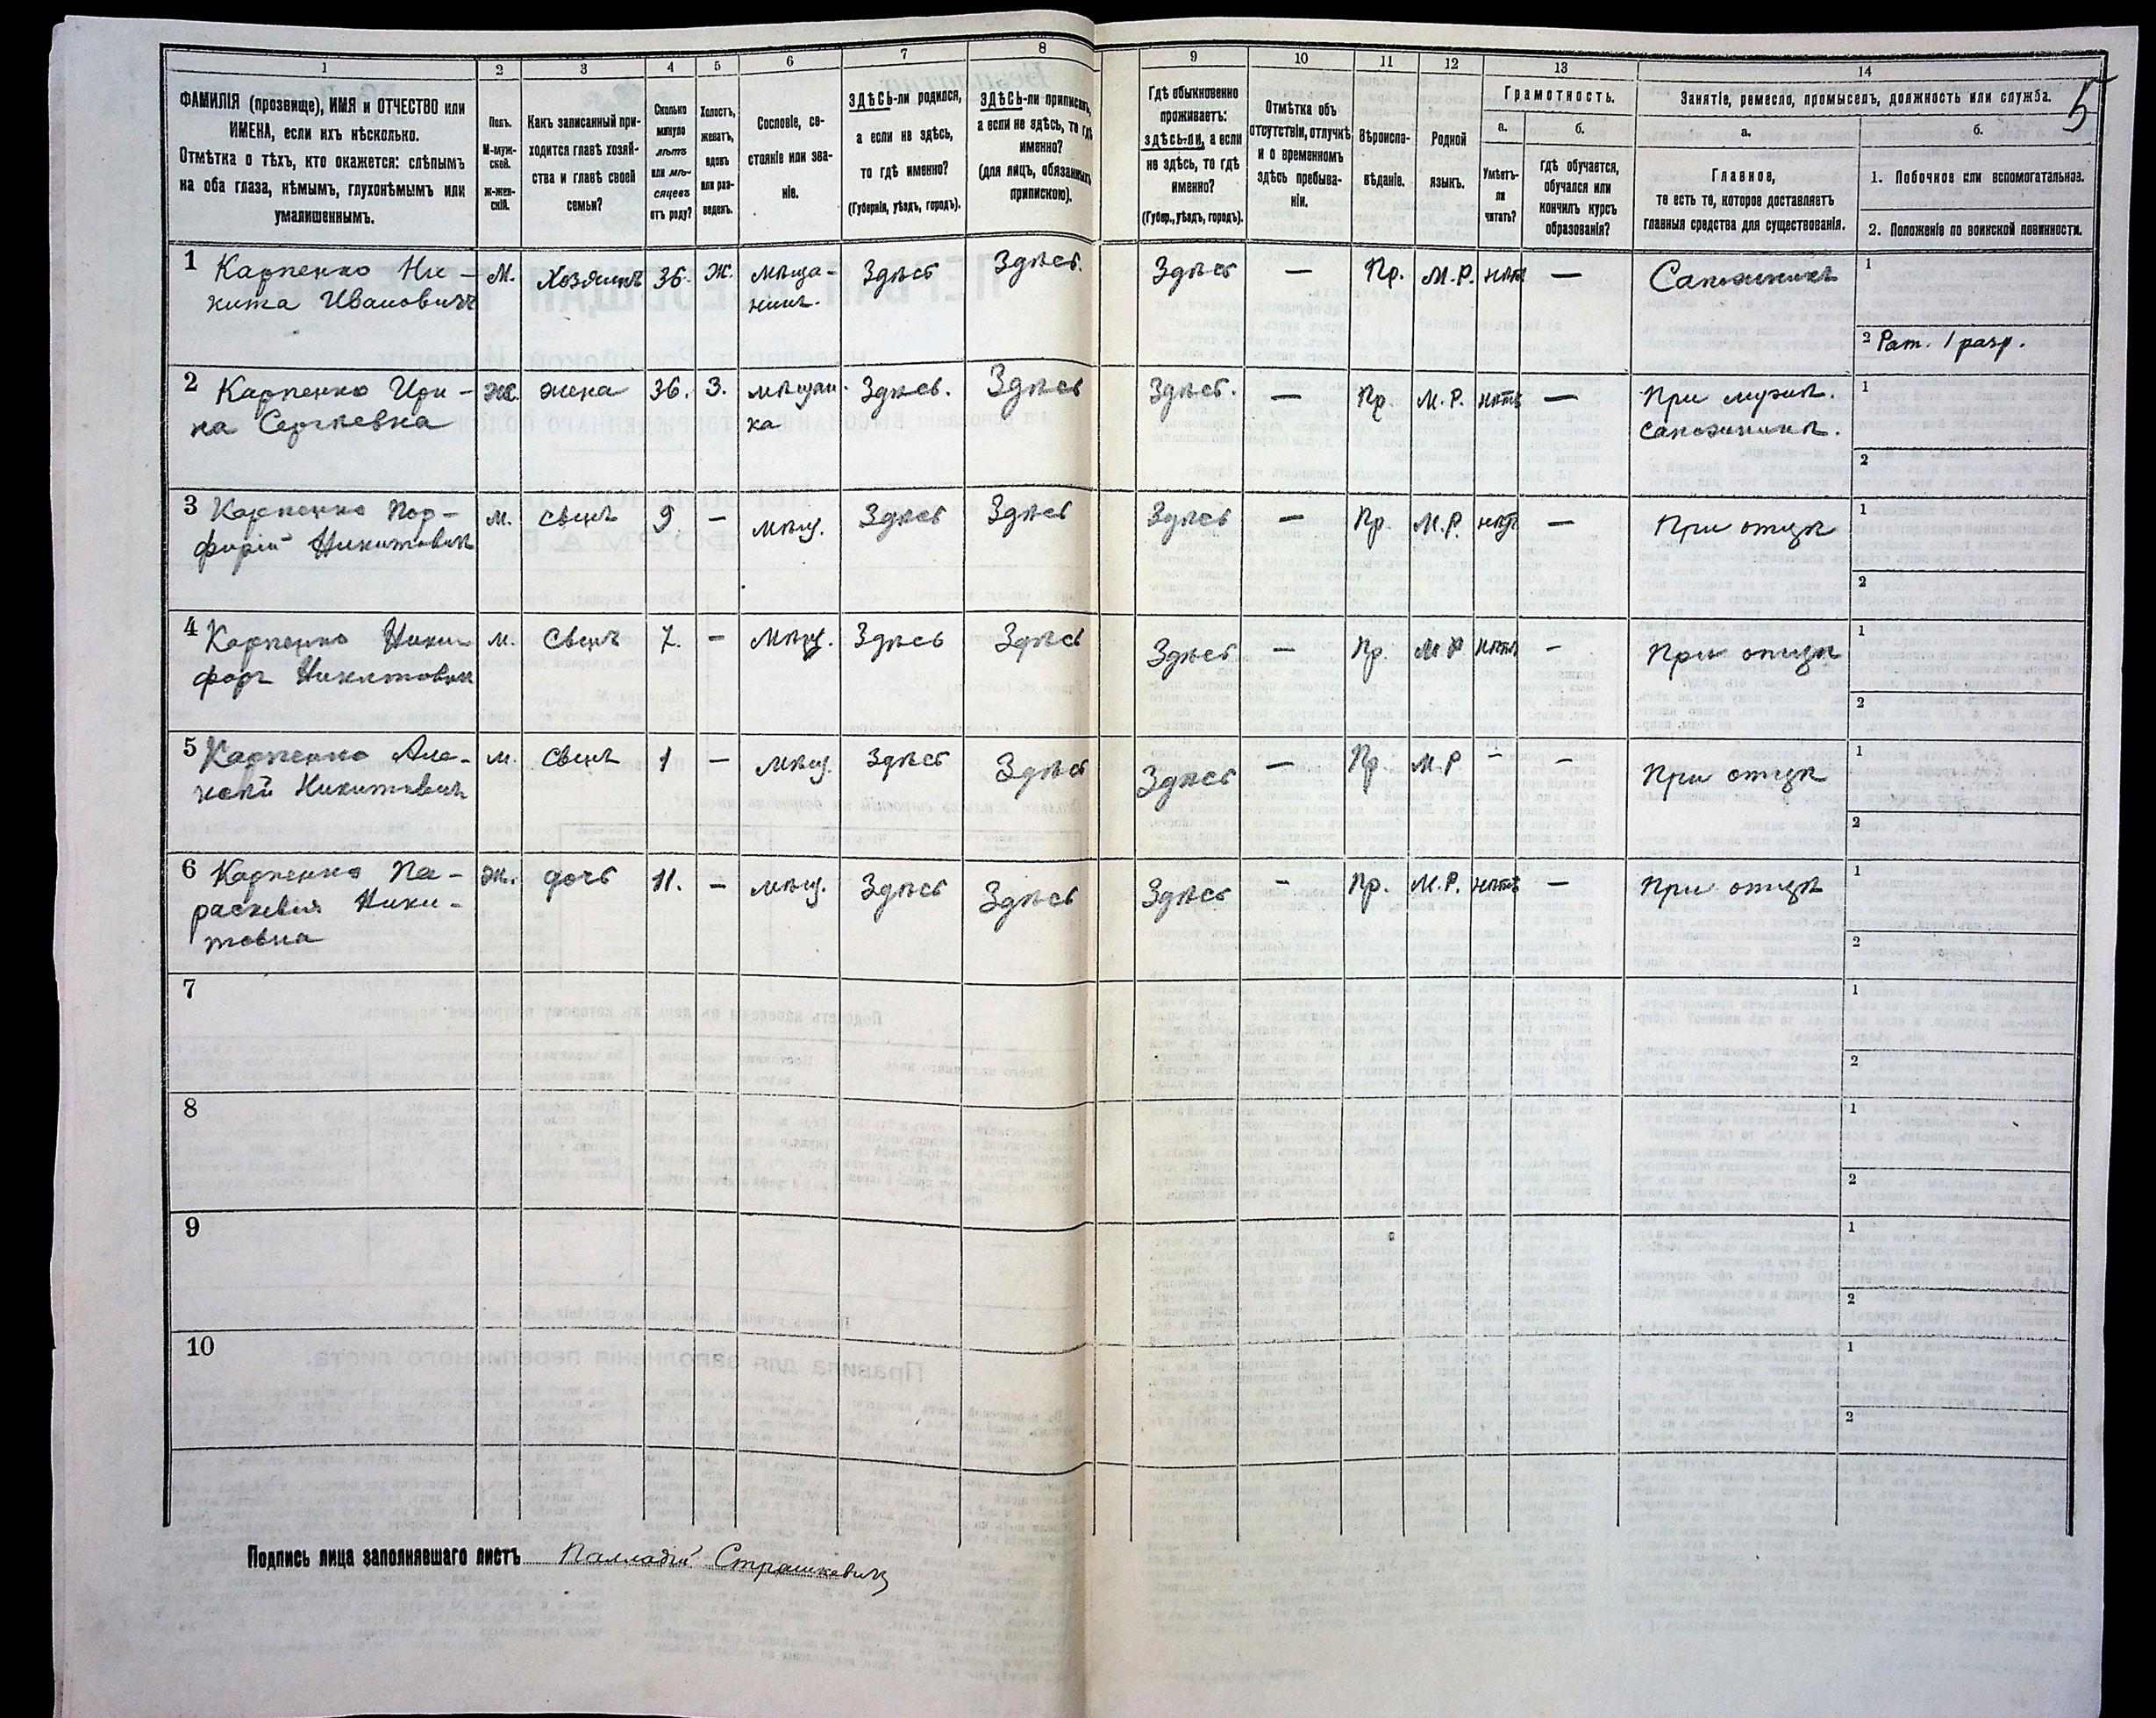 1 2 3 4 5 6 7 8 9 10 11 12 13 14
5
ФАМИЛІЯ (прозвище), ИМЯ и ОТЧЕСТВО или
ИМЕНА, если ихъ нѣсколько.
Отмѣтка о тѣхъ, кто окажется: слѣпымъ
на оба глаза, нѣмымъ, глухонѣмымъ или
умалишеннымъ.
Полъ.
М-муж-
ской.
Ж-жен-
скій.
Какъ записанный при-
ходится главѣ хозяй-
ства и главѣ своей
семьи?
Сколько
минуло
лѣтъ
или мѣ-
сяцевъ
отъ роду?
Холостъ,
женатъ,
вдовъ
или раз-
веденъ.
Сословіе, со-
стояніе или зва-
ніе.
ЗДѢСЬ-ли родился,
а если не здѣсь,
то гдѣ именно?
(Губернія, уѣздъ, городъ).
ЗДѢСЬ-ли приписанъ,
а если не здѣсь, то гдѣ
именно?
(для лицъ, обязанныхъ
припискою).
Гдѣ обыкновенно
проживаетъ:
здѣсь-ли, а если
не здѣсь, то гдѣ
именно?
(Губер., уѣздъ, городъ).
Отмѣтка объ
отсутствіи, отлучкѣ
и о временномъ
здѣсь пребыва-
ніи.
Вѣроиспо-
вѣданіе.
Родной
языкъ.
Грамотность.
а. б.
Умѣетъ-
ли
читать?
гдѣ обучается,
обучался или
кончилъ курсъ
образованія?
Занятіе, ремесло, промыселъ, должность или служба.
а. б.
Главное,
то есть то, которое доставляетъ
главныя средства для существованія.
1. Побочное или вспомогательное.
2. Положеніе по воинской повинности.
1 Карпенко Ни- М. Хозяинъ 36. Ж. мѣща- Здѣсь Здѣсь. Здѣсь — Пр. М.Р. нѣтъ — Сапожникъ 1
кита Ивановичъ нинъ.
2 Рат. 1 разр.
2 Карпенко Ири- Ж. жена 36. З. мѣщан- Здѣсь. Здѣсь Здѣсь. — Пр М.Р. нѣтъ — При мужѣ. 1
на Сергѣевна ка сапожникѣ.
2
3 Карпенко Пор- м. сынъ 9 — мѣщ. Здѣсь Здѣсь Здѣсь — Пр. М.Р. нѣтъ — При отцѣ 1
фирій Никитовичъ
2
4 Карпенко Ники- м. сынъ 7. — мѣщ. Здѣсь Здѣсь Здѣсь — Пр. М.Р нѣтъ — При отцѣ 1
форъ Никитовичъ
2
5 Карпенко Але- м. сынъ 1 — мѣщ. Здѣсь Здѣсь Здѣсь — Пр. М.Р. — — При отцѣ 1
ксѣй Никитовичъ
2
6 Карпенко Па- Ж. дочь 11. — мѣщ. Здѣсь Здѣсь Здѣсь — Пр. М.Р. нѣтъ — При отцѣ 1
раскевія Ники-
товна
2
7 1
2
8 1
2
9 1
2
10 1
2
Подпись лица заполнявшаго листъ Палладій Страшкевичъ